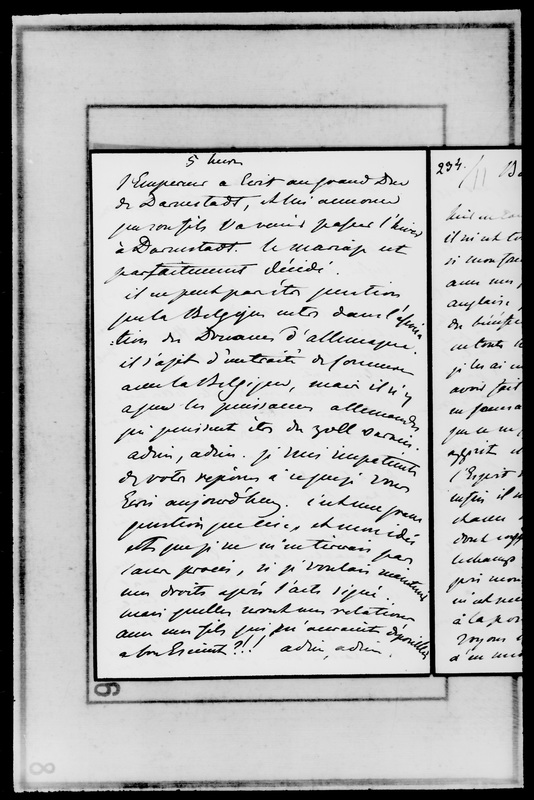 5 heures
l'Empereur a Ecrit au grand Duc
de Darmstadt, et lui annonce
que son fils va venir passer l'hiver
à Darmstadt. le mariage est
parfaitement décidé.
il ne peut pas être question
que la Belgique entre dans l'associa
tion des Douanes d'allemagne.
il s'agit d'un traité de commerce
avec la Belgique, mais il n'y
a que les puissances allemandes
qui puissent être du zoll verein.
adieu, adieu. je suis impatiente
de votre réponse à ce que je vous
Ecris aujourd'huy. c'est une grave
question que celle, et mon idée
est que je ne m'en tirerais pas
sans procès, si je voulais maintenir
mes droits après l'acte signé.
mais quelles seront mes relations
avec mes fils qui m'auraient dépouillée
a bon Escient ?!! adieu, adieu.
234.
11
il n'est
si mon
avec mes
anglaise,
je les ai
avoir fait
que ce ne
esprit
l'Esprit
enfin il
chacun
dont
à la
Voyons
6
8